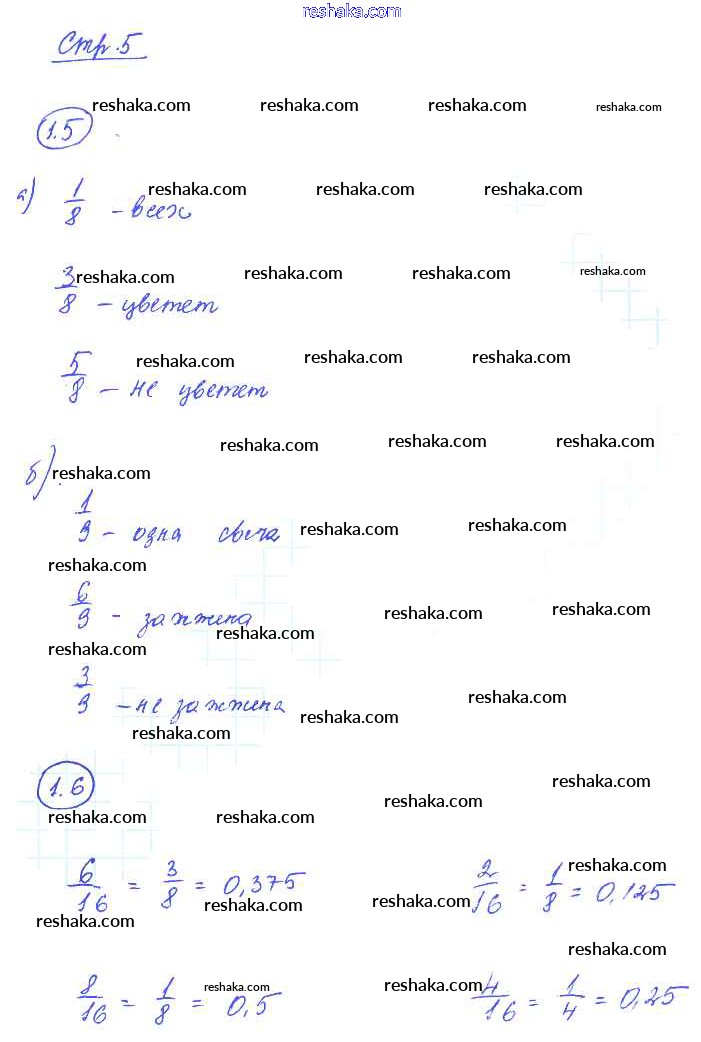 reshaka.com
Стр. 5
reshaka.com reshaka.com reshaka.com reshaka.com
1.5
reshaka.com reshaka.com reshaka.com
а) 1/8 - всех
reshaka.com reshaka.com reshaka.com reshaka.com
3/8 - цветет
reshaka.com reshaka.com reshaka.com
5/8 - не цветет
reshaka.com reshaka.com reshaka.com
б) reshaka.com
1/9 - одна свеча reshaka.com reshaka.com
reshaka.com
6/9 - зажжена reshaka.com reshaka.com
reshaka.com reshaka.com
3/9 - не зажжена reshaka.com
reshaka.com reshaka.com
1.6 reshaka.com
reshaka.com reshaka.com reshaka.com
reshaka.com
6/16 = 3/8 = 0,375 2/16 = 1/8 = 0,125
reshaka.com reshaka.com reshaka.com
reshaka.com
reshaka.com reshaka.com
8/16 = 1/8 = 0,5 4/16 = 1/4 = 0,25